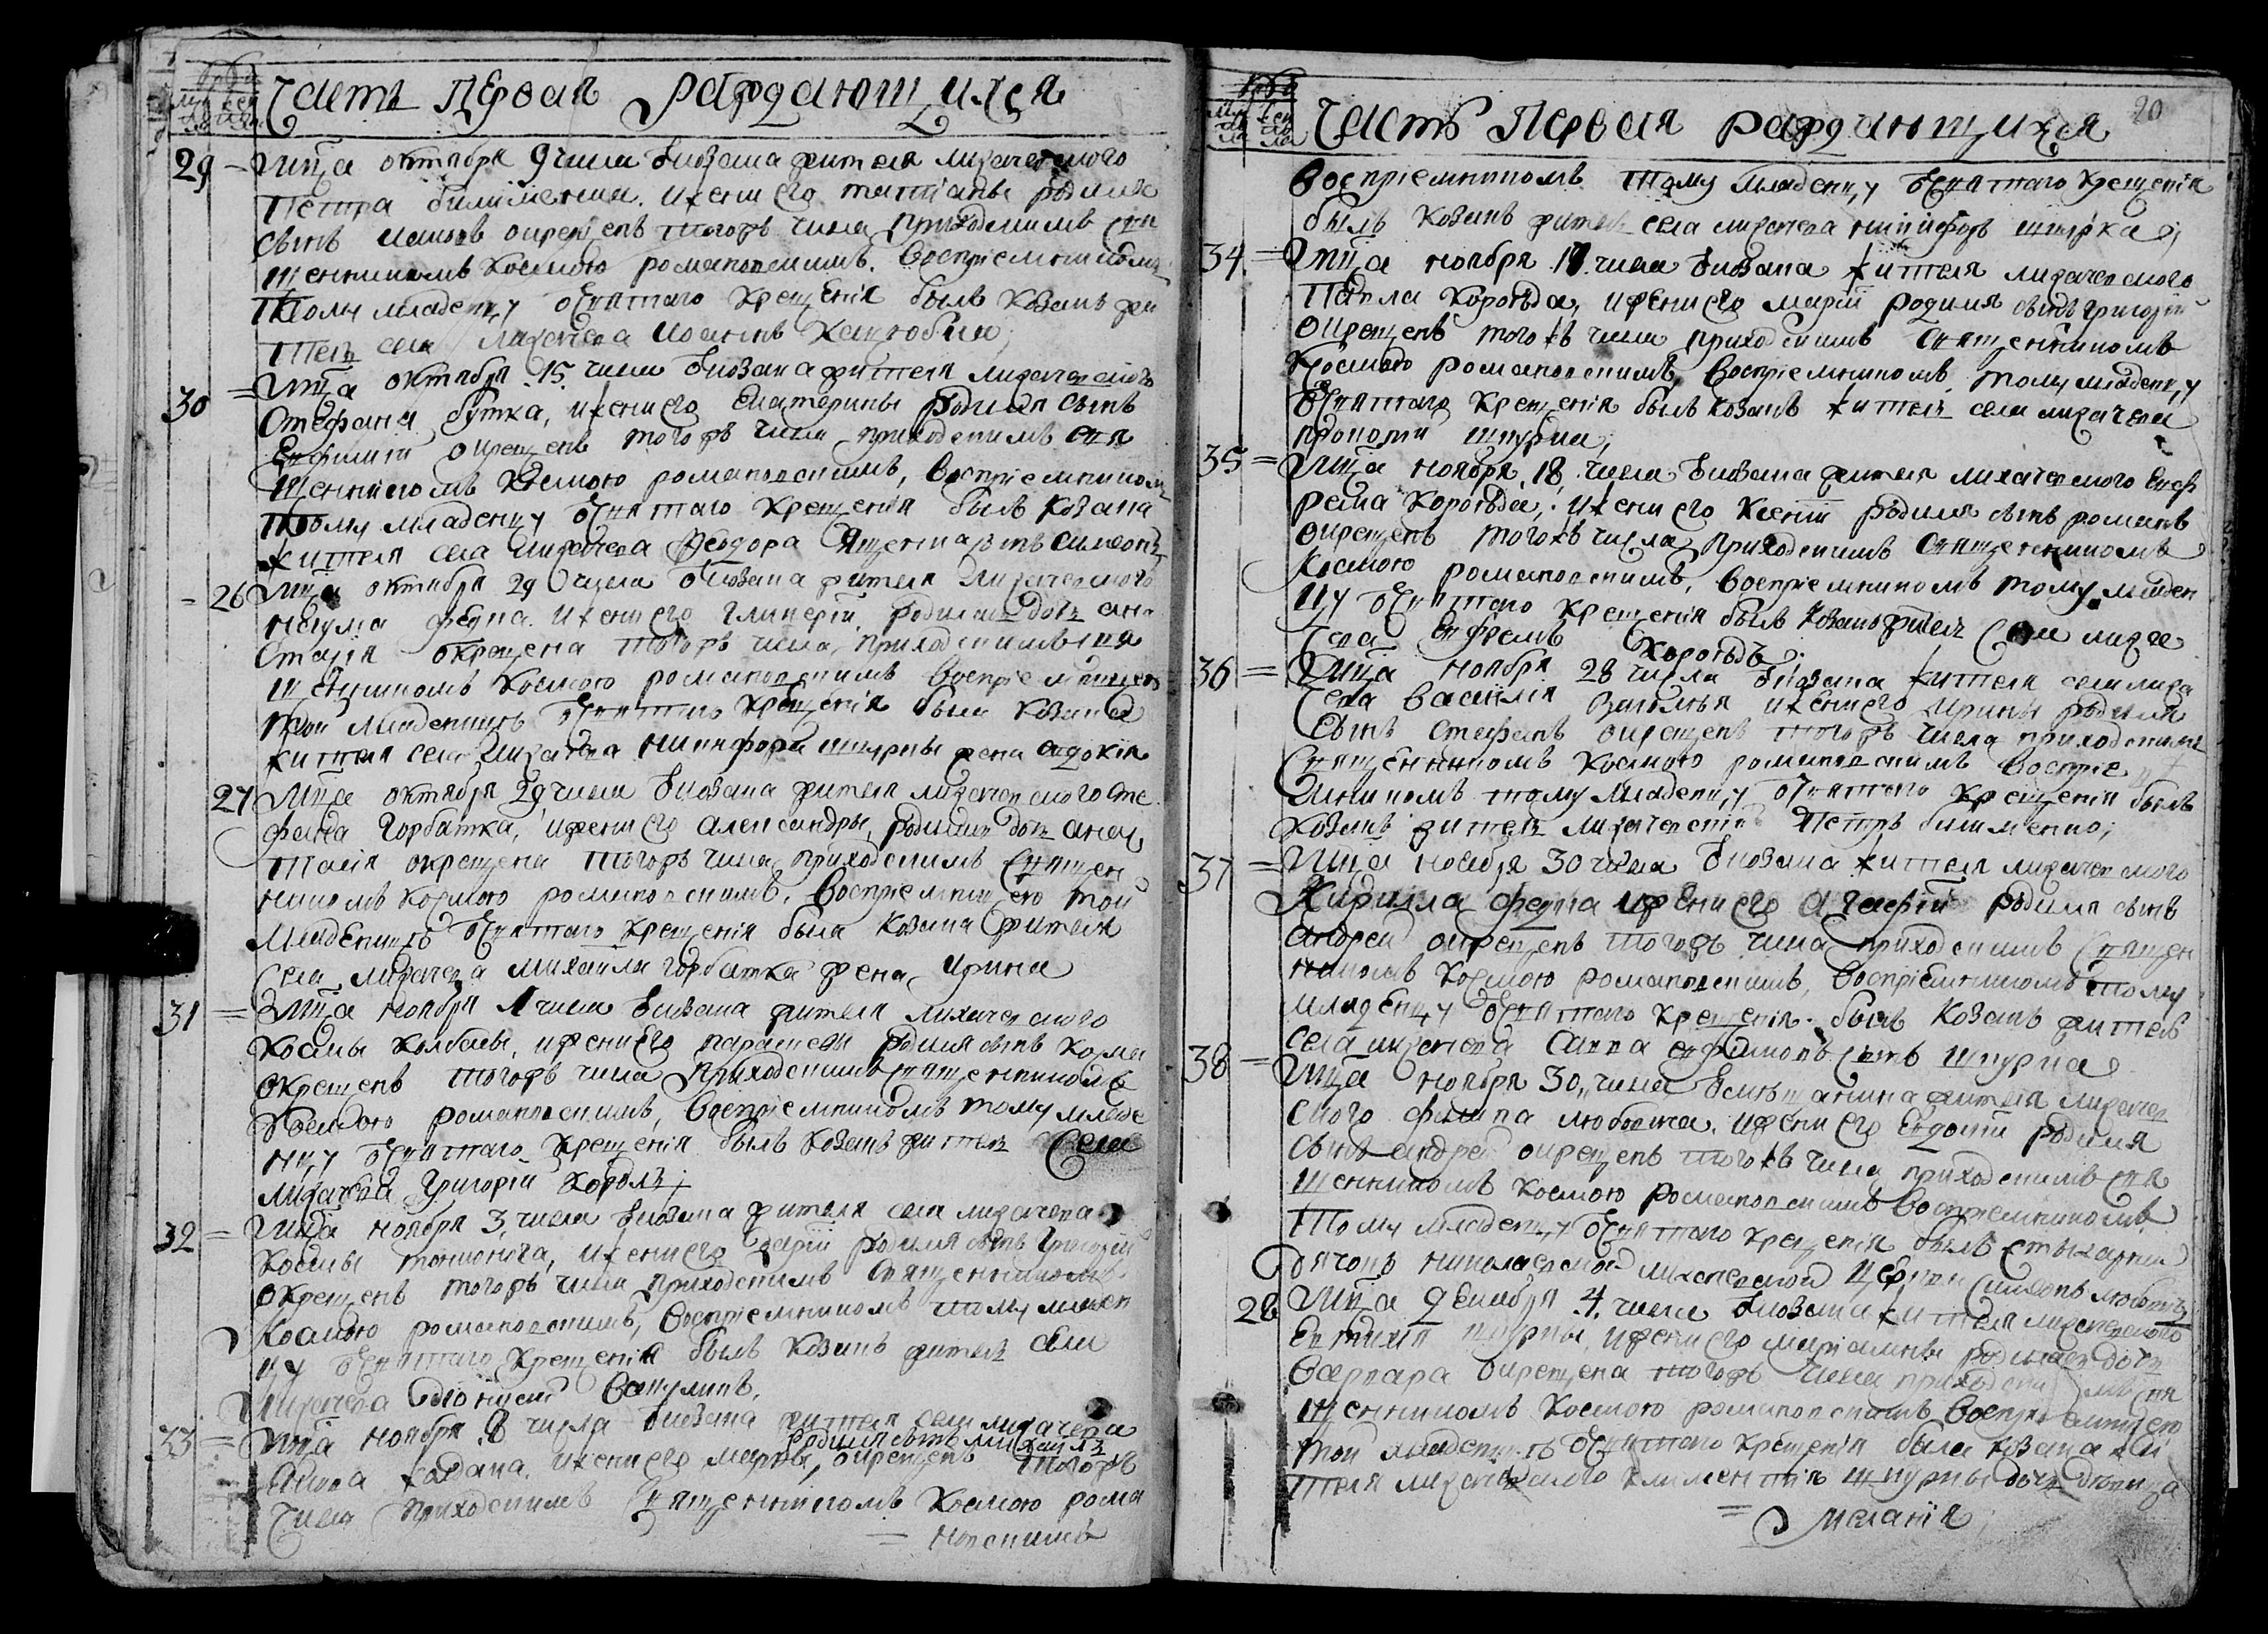 Часть Первая раждающихся
29 = Мца октября 9 числа Укозака жителя лихачевского
Петра билименка. ижени его татіаны родился
сынъ Іаковъ окрещенъ тогожъ числа Приходскимъ свя
щенникомъ Космою романовскимъ. Воспріемникомъ
Тому младенцу отсвятаго крещенія былъ козакъ жи
тель села Лихачева Иоаннъ
30 = Мца октября 15 числа Укозака жителя лихачевского
Стефана бутка, иженыего Екатерины родился сынъ
Евфимій окрещенъ тогожъ числа приходскимъ свя
щенникомъ Космою романовскимъ, воспріемникомъ
тому младенцу отсвятаго крещенія былъ козака
жителя села Лихачева Феодора сынъ Симеонъ
= 26 Мца октября 29 числа Укозака жителя Лихачевского
наума федца. иженыего гликеріи родилась дочь ана
стасія окрещена тогожъ числа, приходскимъ свя
щенникомъ Космою романовскимъ воспріемницею
той младеницѣ отсвятаго крещенія была козака
жителя села Лихачева никифора шкурки жена евдокія
27 Мца октября 29 числа Укозака жителя лихачевского сте
фана Горбатка, иженыего александры, родилась дочь анас
тасія окрещена тогожъ числа приходскимъ священ
никомъ Космою романовскимъ. Воспріемницею той
Младеницѣ отсвятаго крещенія была козака жителя
села лихачева михаила горбатка жена, ирина
31 = Мца ноября 1 числа Укозака жителя лихачевского
Космы колбасы, иженыего параскеви родился сынъ косма
окрещенъ тогожъ числа Приходскимъ священникомъ
Космою романовскимъ, Воспріемникомъ тому младе
нцу отсвятаго крещенія былъ козакъ житель Села
лихачева Григорій король;
32 = Мца ноября 3, числа Укозака жителя села лихачева
космы тонконога, иженыего маріи родился сынъ Григорій
окрещенъ тогожъ числа приходскимъ священникомъ
Космою романовскимъ, воспріемникомъ тому младен
цу отсвятаго крещенія былъ козакъ житель села
Лихачева Діонисій Вакулинъ.
33 = Мца ноября 8 числа Укозака жителя села лихачева
родился сынъ михаилъ
Якова иженыего марѳы, окрещенъ тогожъ
числа приходскимъ священникомъ Космою рома
= новскимъ
20
Часть Первая раждающихся
Воспріемникомъ тому Младенцу отсвятаго крещенія
былъ козакъ житель села лихачева никифоръ шкурка;
34 = Мца ноября 17 числа Укозака жителя лихачевского
Павла короѣда, иженыего маріи родился сынъ григорій
окрещенъ тогожъ числа приходскимъ священникомъ
Космою романовскимъ, Воспріемникомъ тому младенцу
отсвятаго крещенія былъ козакъ житель села лихачева
прокопій шкурка;
35 = Мца ноября 18 числа Укозака жителя лихачевского Евф
рема короѣда, иженыего ксеніи родился сынъ романъ
окрещенъ тогожъ числа приходскимъ священникомъ
Космою романовскимъ, воспріемникомъ тому младен
цу отсвятаго крещенія былъ козакъ житель села лиха
чева Ефремъ короѣдъ.
36 = Мца ноября 28 числа Укозака жителя села лиха
чева василія иженыего ирины родился
сынъ Стефанъ окрещенъ тогожъ числа приходскимъ
священникомъ космою романовскимъ воспріе
мникомъ тому младенцу отсвятаго крещенія былъ
козакъ житель лихачевскій Петръ билименко;
37 = Мца ноября 30 числа Укозака жителя лихачевского
Кирилла федца иженыего агафіи родился сынъ
Андрей окрещенъ тогожъ числа приходскимъ священ
никомъ Космою романовскимъ, воспріемникомъ тому
младенцу отсвятаго крещенія былъ козакъ житель
села лихачева Савва сынъ шкурка
38 = Мца ноября 30 числа жителя лихачев
ского филипа любовича. иженыего Евдокіи родился
сынъ андрей окрещенъ тогожъ числа, приходскимъ свя
щенникомъ космою романовскимъ воспріемникомъ
Тому младенцу отсвятаго крещенія былъ стихарний
дячокъ николаевской лихачевской церкви
28 Мца декабря 4 числа Укозака жителя лихачевского
шкурки иженыего маріамны родилась дочь
Варвара окрещена тогожъ числа приходскимъ свя
щенникомъ Космою романовскимъ воспріемницею
той младеницѣ отсвятаго крещенія была козака жи
теля лихачевского климентія шкурки дочь девица
= меланія